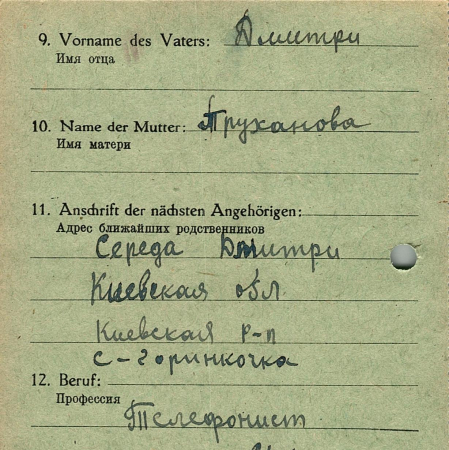 9. Vorname des Vaters: Дмитри
Имя отца
10. Name der Mutter: Труханова
Имя матери
11. Anschrift der nächsten Angehörigen:
Адрес ближайших родственников
Середа Дмитри
Киевская обл
Киевская р-п
с-горинкочка
12. Beruf:
Профессия
Телефонист